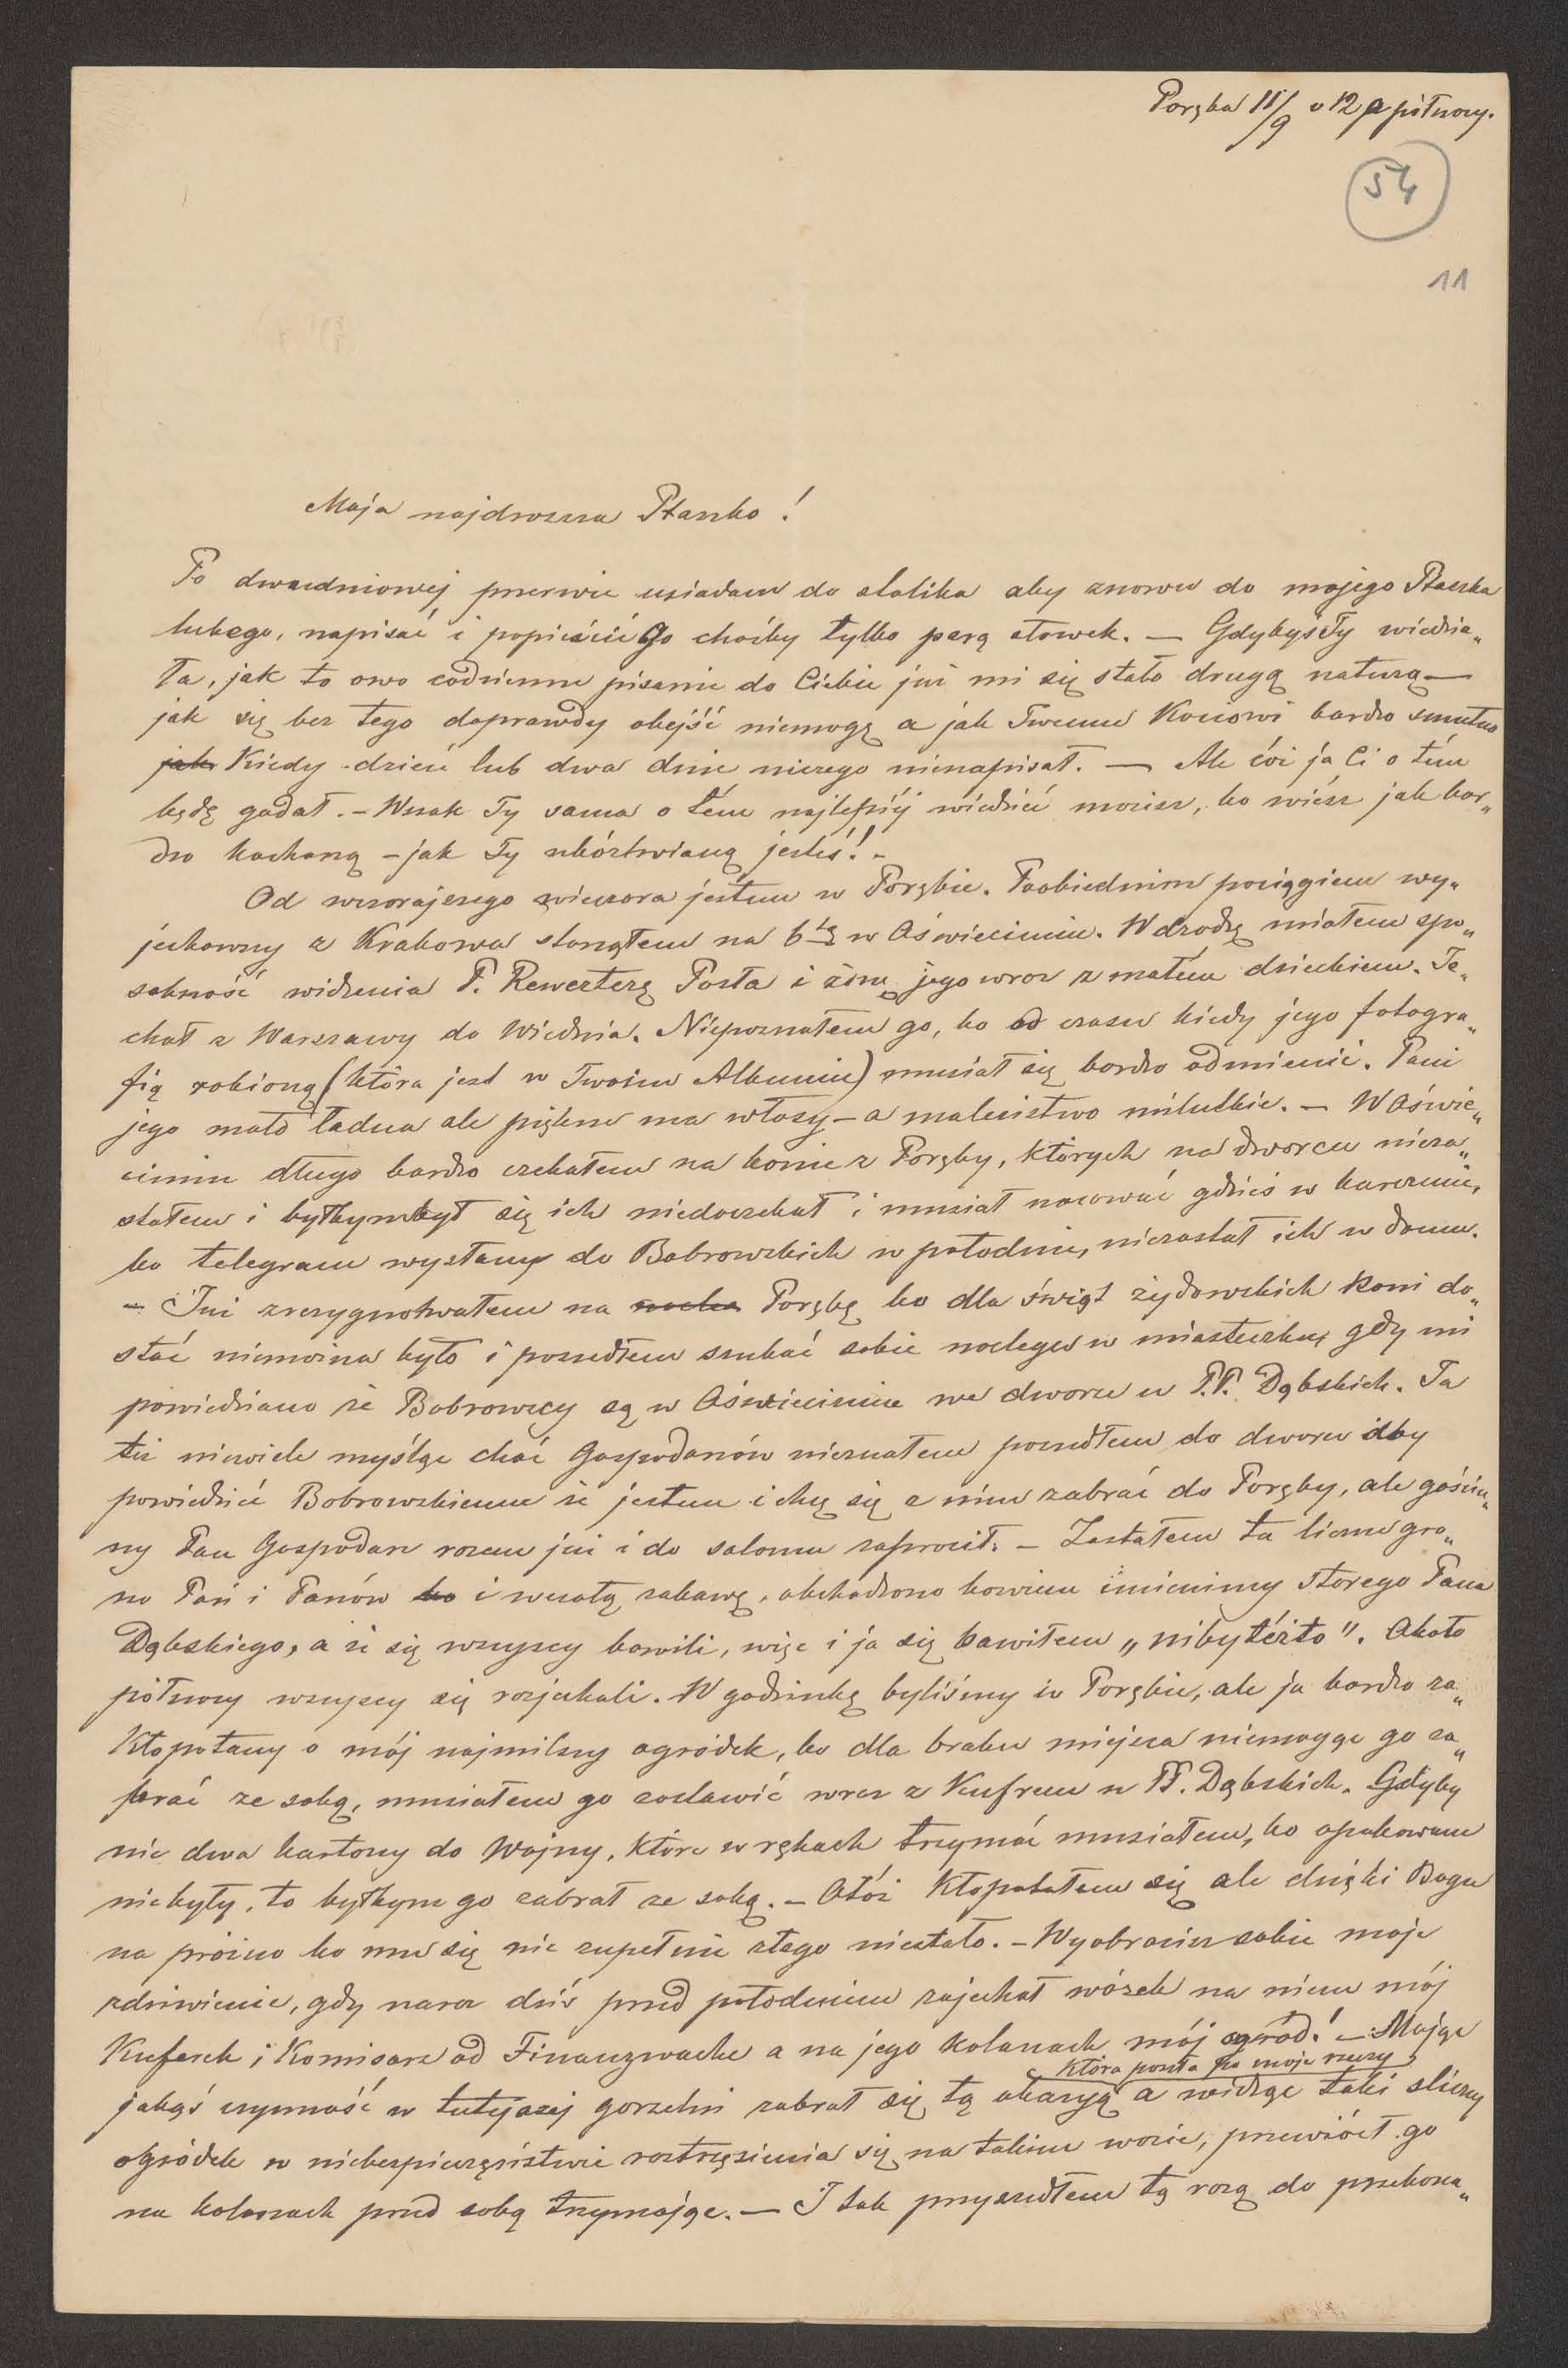 Poręba 11/9 o 12 o północy.
54
11
Moja najdroższa Ptaszko!
Po dwudniowej przerwie usiadam do stolika aby znowu do mojego Ptaszka
lubego, napisać i popieścić go choćby tylko parą słówek. — Gdybyś Ty wiedzia„
ła, jak to owo codzienne pisanie do Ciebie już mi się stało drugą naturą —
jak się bez tego doprawdy obejść niemogę a jak Twemu Kociowi bardzo smutno
jak Kiedy dzień lub dwa dnie niczego nienapisał. — Ale cóż ja Ci o tém
będę gadał. – Wszak Ty sama o tém najlepiéj wiedzieć możesz, bo wiész jak bar„
dzo kochaną – jak Ty ubóstwianą jesteś! –
Od wczorajszego wieczora jestem w Porębie. Poobiednim pociągiem wy„
jechawszy z Krakowa stanąłem na 6tą w Oświecimiu. W drodzę miałem spo„
sobność widzenia P. Rewerterę Posła i żonę jego wraz z małém dzieckiem. Je„
chał z Warszawy do Wiednia. Niepoznałem go, bo od czasu kiedy jego fotogra„
fią robioną (która jest w Twoim Albumie) musiał się bardzo odmienić. Pani
jego mało ładna ale piękne ma włosy – a maleństwo milutkie. – W Oświe„
cimiu długo bardzo czekałem na konie z Poręby, których na dworcu nieza„
stałem i byłbym był się ich niedoczekał i musiał nocować gdzieś w karczmie,
bo telegram wysłany do Bobrowskich w południe, niezastał ich w domu.
– Już zrezygnowałem na Porębę bo dla świąt żydowskich koni do„
stać niemożna było i poszedłem szukać sobie noclegu w miasteczku, gdy mi
powiedziano że Bobrowscy są w Oświecimiu we dworze u P.P. Dąbskich. Ja
też niewiele myśląc choć Gospodarzów nieznałem poszedłem do dworu aby
powiedzieć Bobrowskiemu że jestem i chcę się z nim zabrać do Poręby, ale gościn„
ny Pan Gospodarz razem już i do salonu zaprosił. – Zastałem tu liczne gro„
no Pań i Panów bo i wesołą zabawę, obchodzono bowiem imieniny starego Pana
Dąbskiego, a że się wszyscy bawili, więc i ja się bawiłem „nibyteżto". Około
północy wszyscy się rozjechali. W godzinkę byliśmy w Porębie, ale ja bardzo za„
kłopotany o mój najmilszy ogródek, bo dla braku miejsca niemogąc go za„
brać ze sobą, musiałem go zostawić wraz z Kufrem u PP. Dąbskich. Gdyby
nie dwa kartony do Wojny, które w rękach trzymać musiałem, bo opakowane
niebyły, to byłbym go zabrał ze sobą. – Otóż kłopotałem się ale dzięki Bogu
na próżno bo mu się nic zupełnie złego niestało. – Wyobrazisz sobie moje
zdziwienie, gdy naraz dziś przed południem zajechał wózek na niem mój
Kuferek i Komisarz od Finanzwache a na jego kolanach mój ogród! – Mając
która poszła po moje rzeczy
jakąś czynność w tutejszej gorzelni zabrał się tą okazyą a widząc taki śliczny
ogródek w niebezpieczeństwie roztrzęsienia się na takim wozie, przewiózł go
na kolanach przed sobą trzymając. — I tak przyszedłem tą rozą do przekona„